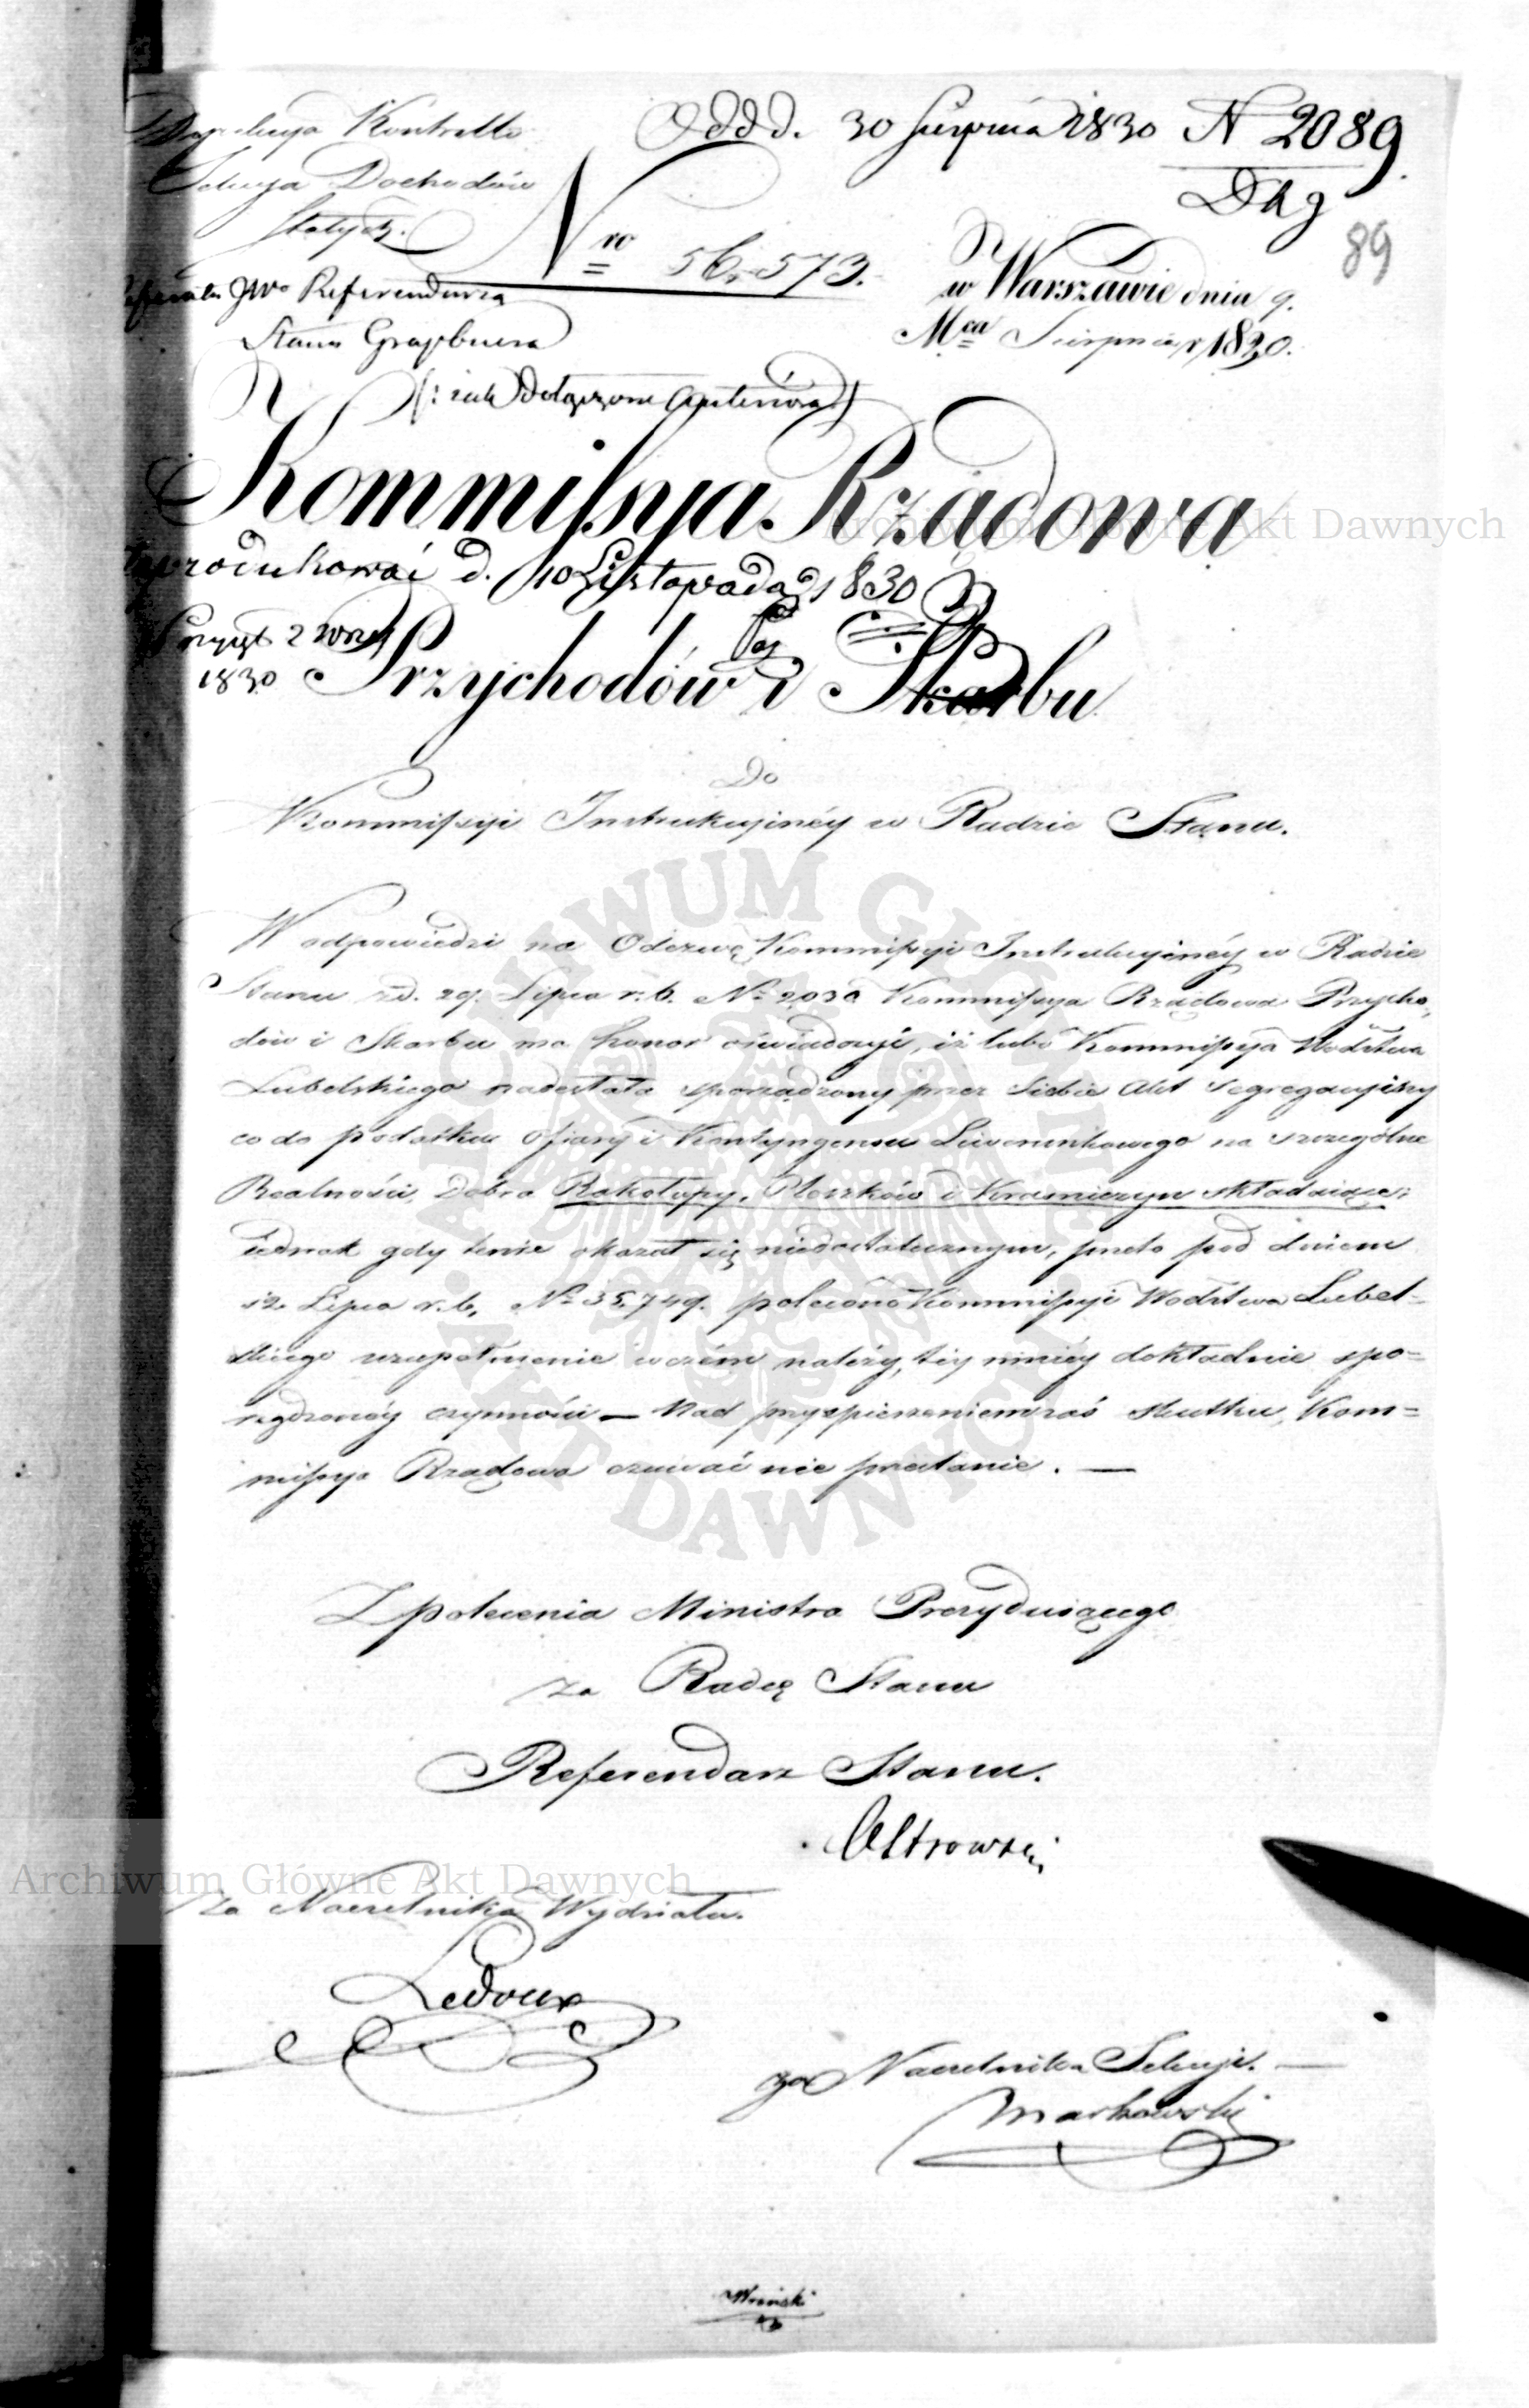 Dyrekcya Kontrolla
Sekcya Dochodów
Stałych.
Oddd. 30 Sierpnia 1830 N 2089
89
Nro 56,573.
w Warszawie dnia 9.
Mca Sierpnia r 1830.
JWo Referendarza
Stanu Graybnera
Kommissya Rządowa
d. 10 Listopada 1830
2 Wrześ
1830
Przychodów i Skarbu
Do
Kommissyi Instrukcyinéy w Radzie Stanu.
W odpowiedzi na Odezwę Kommissyi Instrukcyinéy w Radzie
Stanu z d. 29. Lipca r. b. No 2030 Kommissya Rządowa Przycho-
dów i Skarbu ma honor oświadczyć, iż lubo Kommissya Wodztwa
Lubelskiego nadesłała sporządzony przez siebie Akt segregacyiny
co do podatku ofiary i Kontyngensu Liwerunkowego na szczególne
Realności Dobra Rakołupy, Ploszków i Kraniczyn składaiące;
iednak gdy tenże okazał się niedostatecznym, przeto pod dniem
12. Lipca r. b. No 35,749. polecono Kommissyi Wodztwa Lubel-
skiego uzupełnienie w czém należy, téy mniéy dokładnie spo-
rządzonéy czynności — Nad przyspieszeniem zaś skutku, Kom=
missya Rządowa czuwać nie przestanie. —
Z polecenia Ministra Prezyduiącego
za Radcę Stanu
Referendarz Stanu.
Ostrowski
Za Naczelnika Wydziału.
Ledoux
za Naczelnika Sekcyi. —
Markowski
Archiwum Główne Akt Dawnych
Archiwum Główne Akt Dawnych
ARCHIWUM GŁÓWNE AKT DAWNYCH